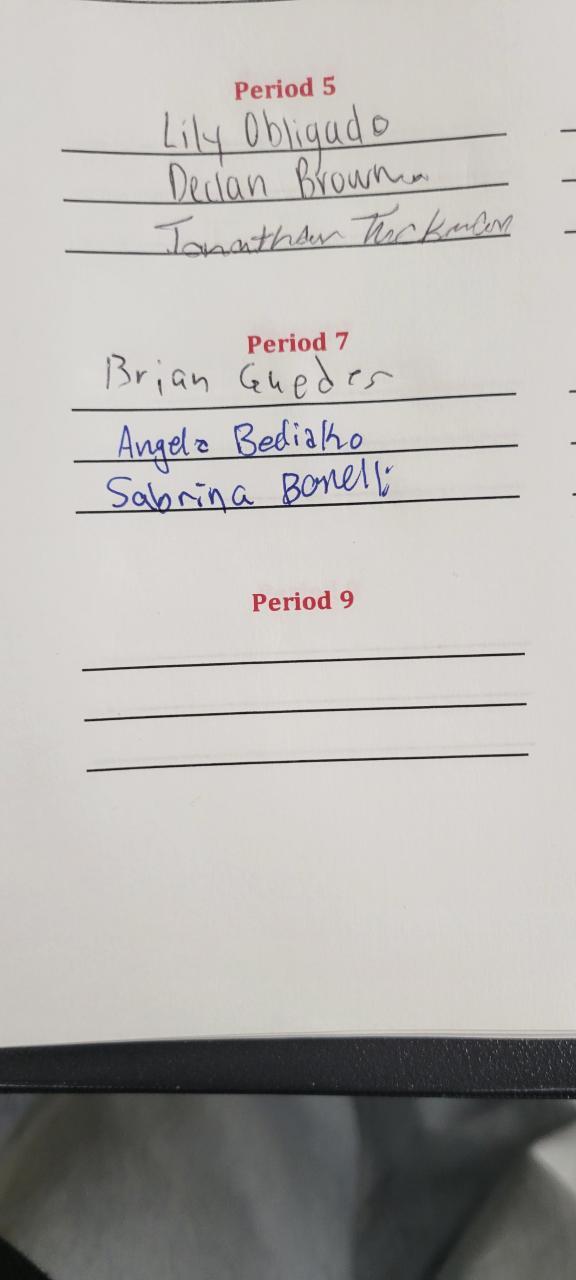 Period 5
Lily Obligado
Declan Brown
Jonathan
Period 7
Brian Guedes
Angela Bediako
Sabrina Bonelli
Period 9